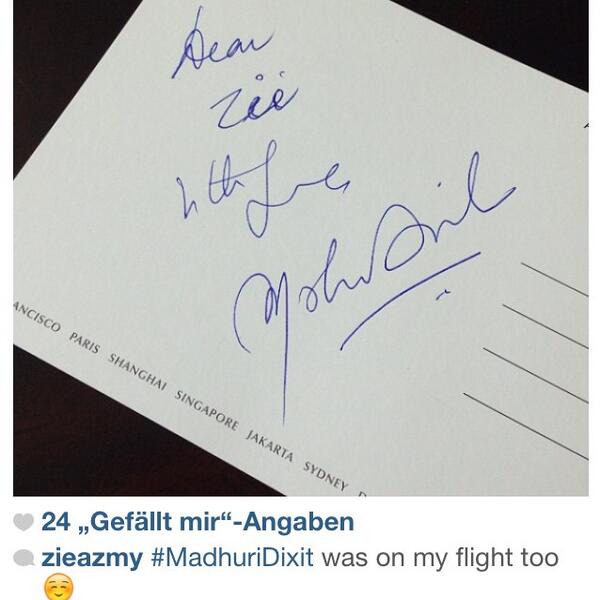 Dear
Zie
With Love
Madhuri Dixit
ANCISCO PARIS SHANGHAI SINGAPORE JAKARTA SYDNEY
24 „Gefällt mir“-Angaben
zieazmy #MadhuriDixit was on my flight too
☺️